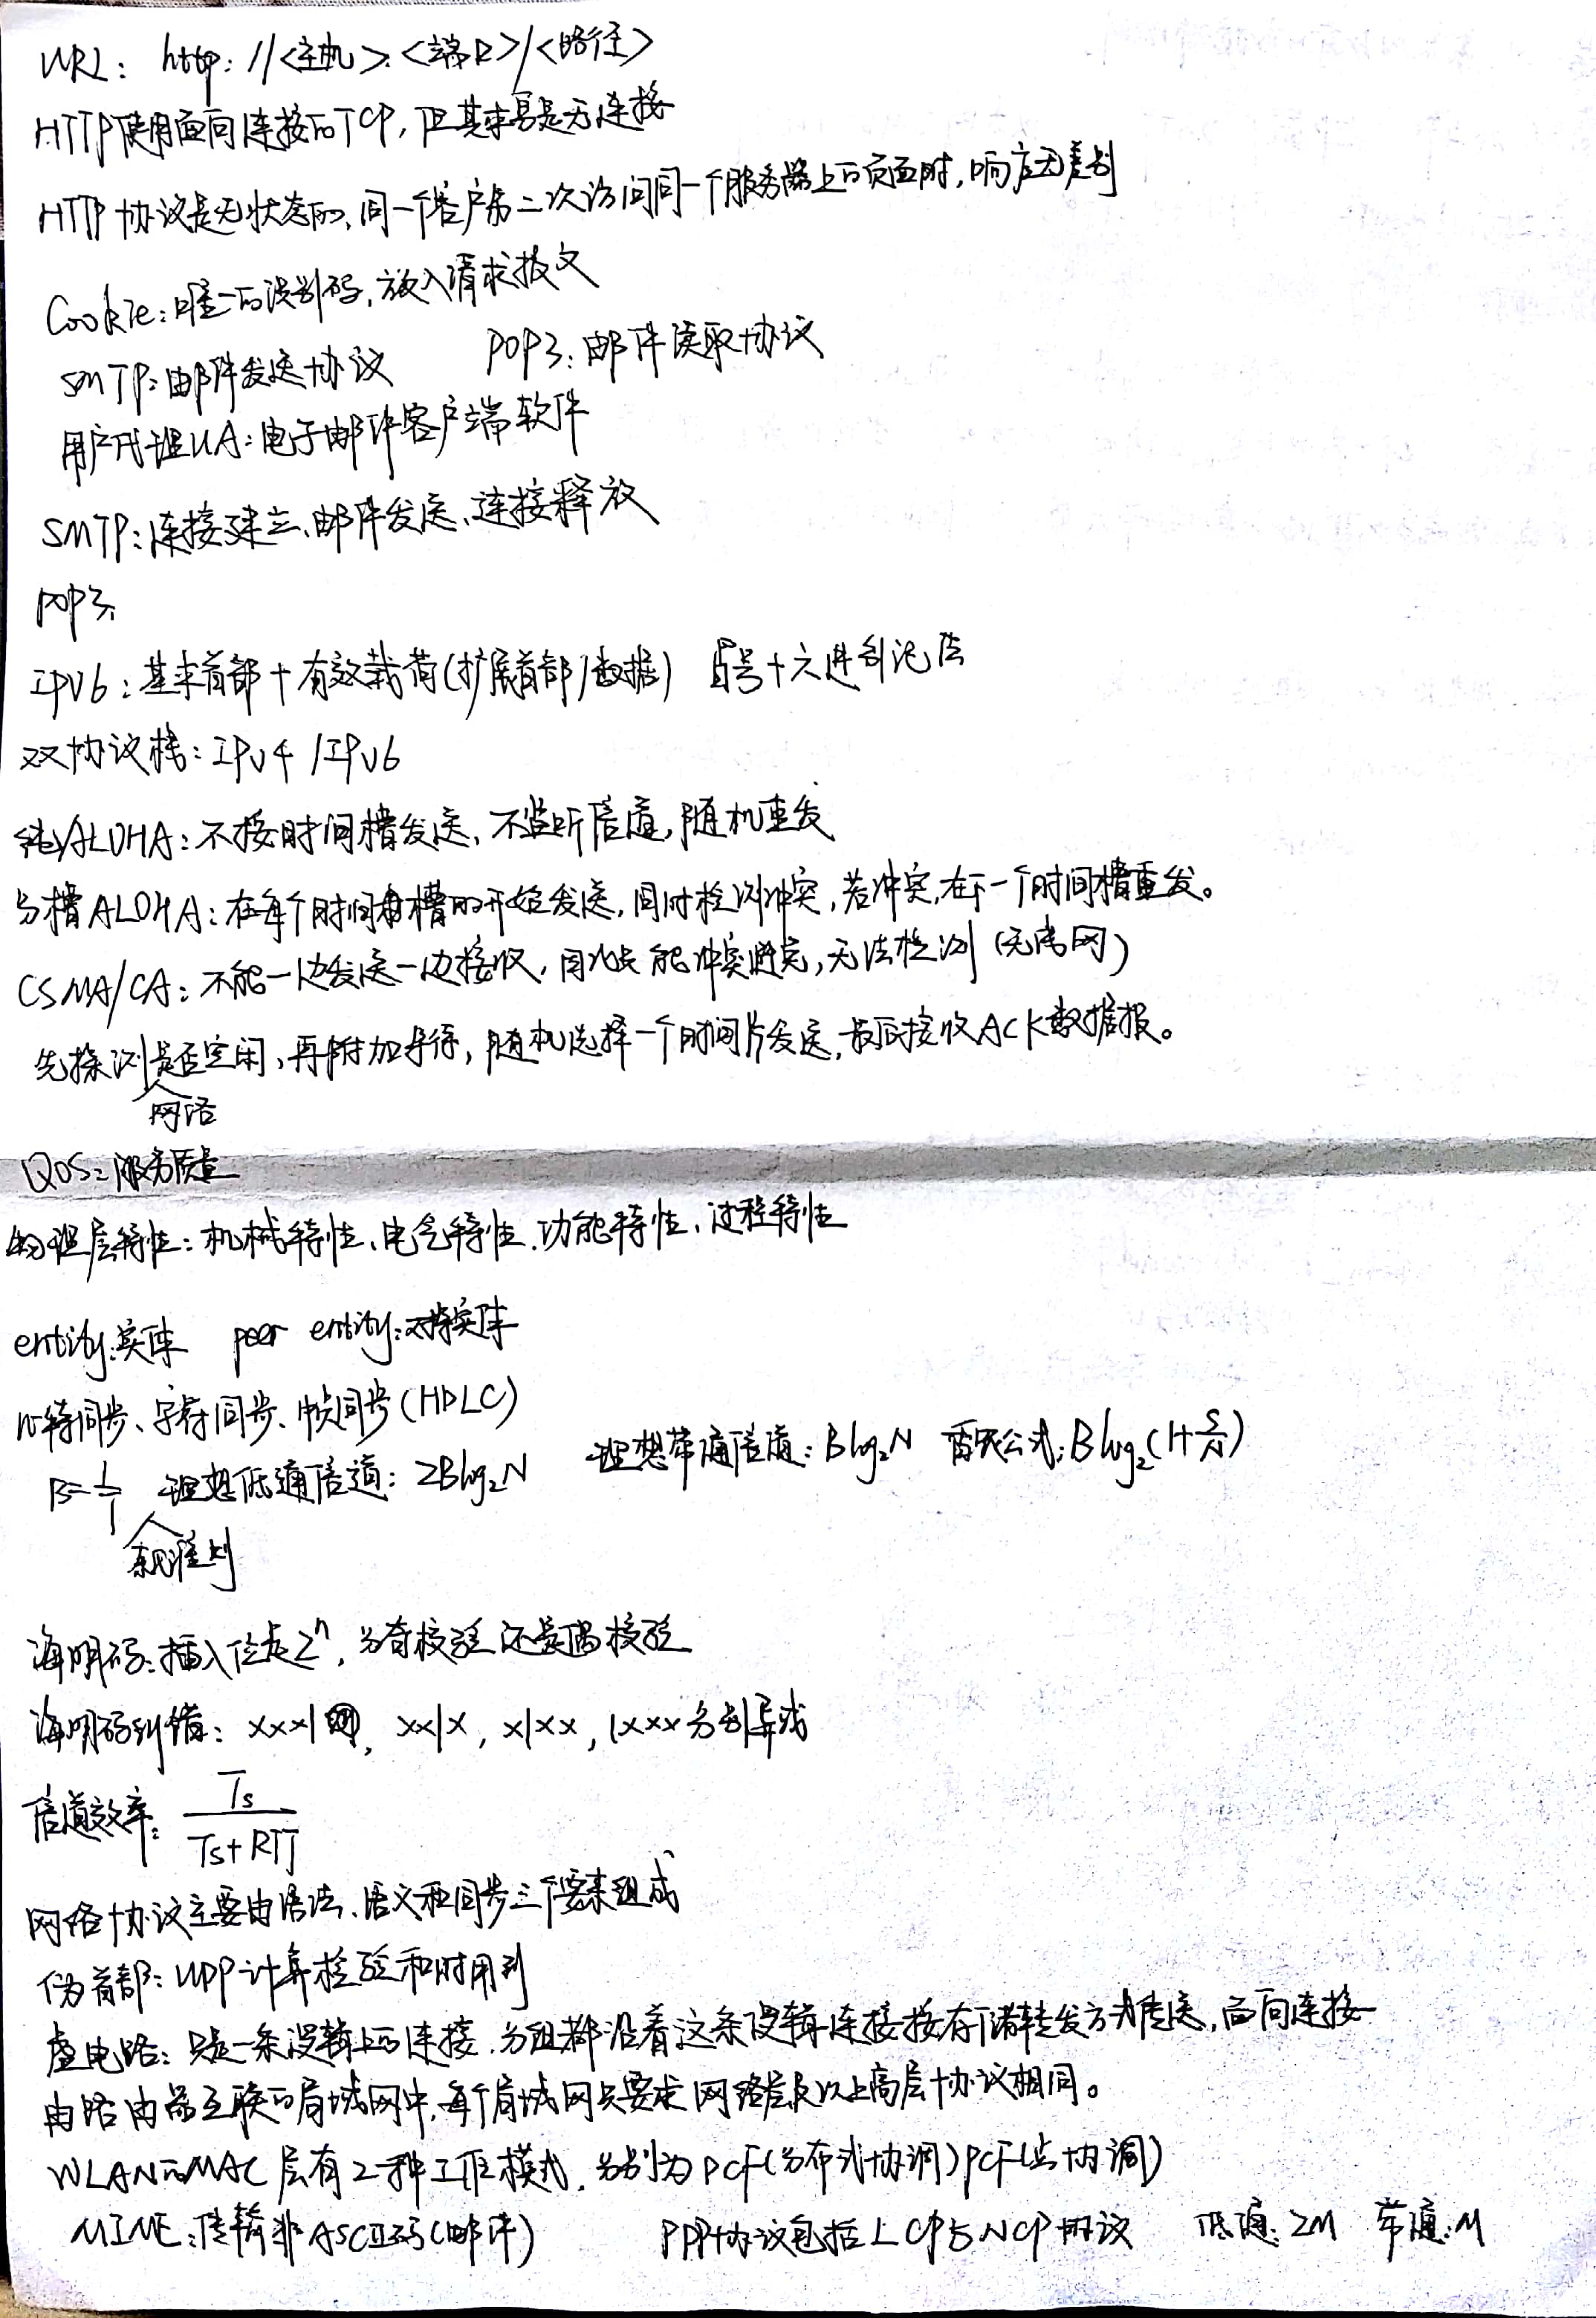 URL: http://<主机>:<端口>/<路径>
HTTP使用面向连接的TCP,但其本身是无连接
HTTP协议是无状态的,同一个客户第二次访问同一个服务器上的页面时,响应无差别
Cookie:唯一的识别码,放入请求报文
SMTP:邮件发送协议 POP3:邮件读取协议
用户代理UA:电子邮件客户端软件
SMTP:连接建立、邮件发送、连接释放
POP3:
IPV6:基本首部+有效载荷(扩展首部/数据) 冒号十六进制记法
双协议栈:IPv4/IPv6
纯ALOHA:不按时间槽发送,不监听信道,随机重发
分槽ALOHA:在每个时间槽的开始发送,同时检测冲突,若冲突,在下一个时间槽重发。
CSMA/CA:不能一边发送一边接收,因此只能冲突避免,无法检测(无线网)
先探测网络是否空闲,再附加等待,随机选择一个时间片发送,最后接收ACK数据报。
QOS:服务质量
物理层特性:机械特性、电气特性、功能特性、过程特性
entity:实体 peer entity:对等实体
比特同步、字符同步、帧同步(HDLC)
B=1/T 理想低通信道:2Blog₂N 理想带通信道:Blog₂N 香农公式:Blog₂(1+S/N)
奈氏准则
海明码:插入位是2ⁿ,分奇校验还是偶校验
海明码纠错:xxx1, xx1x, x1xx, 1xxx分别异或
信道效率:Ts/(Ts+RTT)
网络协议主要由语法、语义和同步三个要素组成
伪首部:UDP计算检验和时用到
虚电路:只是一条逻辑上的连接,分组都沿着这条逻辑连接按存储转发方式传送,面向连接
由路由器互联的局域网中,每个局域网只要求网络层及以上高层协议相同。
WLAN的MAC层有2种工作模式,分别为DCF(分布式协调)PCF(点协调)
MIME:传输非ASCII码(邮件) PPP协议包括LCP与NCP协议 低通:2M 带通:M